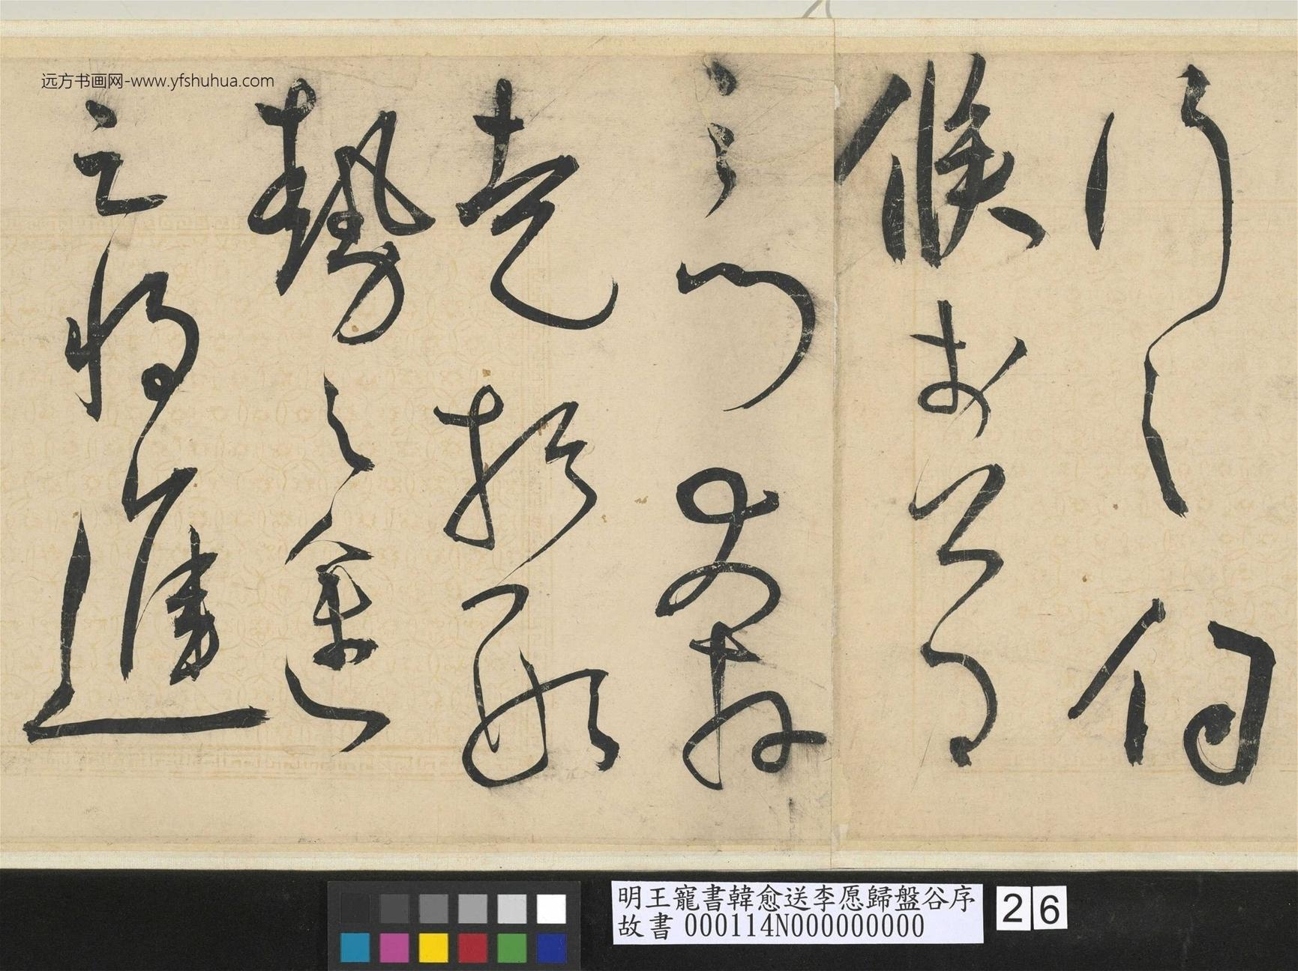 行之伺
候於公卿
之門奔
走於形
勢之途
足將進
远方书画网-www.yfshuhua.com
明王寵書韓愈送李愿歸盤谷序
故書 000114N000000000
26